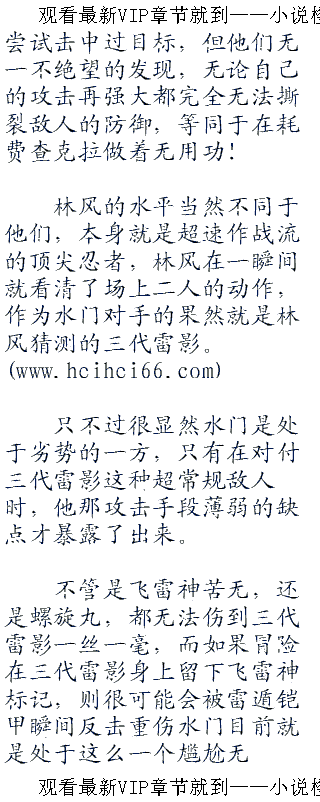 观看最新VIP章节就到——小说
尝试击中过目标，但他们无
一不绝望的发现，无论自己
的攻击再强大都完全无法撕
裂敌人的防御，等同于在耗
费查克拉做着无用功！
林风的水平当然不同于
他们，本身就是超速作战流
的顶尖忍者，林风在一瞬间
就看清了场上二人的动作，
作为水门对手的果然就是林
风猜测的三代雷影。
(www.hcihci66.com)
只不过很显然水门是处
于劣势的一方，只有在对付
三代雷影这种超常规敌人
时，他那攻击手段薄弱的缺
点才暴露了出来。
不管是飞雷神苦无，还
是螺旋丸，都无法伤到三代
雷影一丝一毫，而如果冒险
在三代雷影身上留下飞雷神
标记，则很可能会被雷遁铠
甲瞬间反击重伤水门目前就
是处于这么一个尴尬无
观看最新VIP章节就到——小说